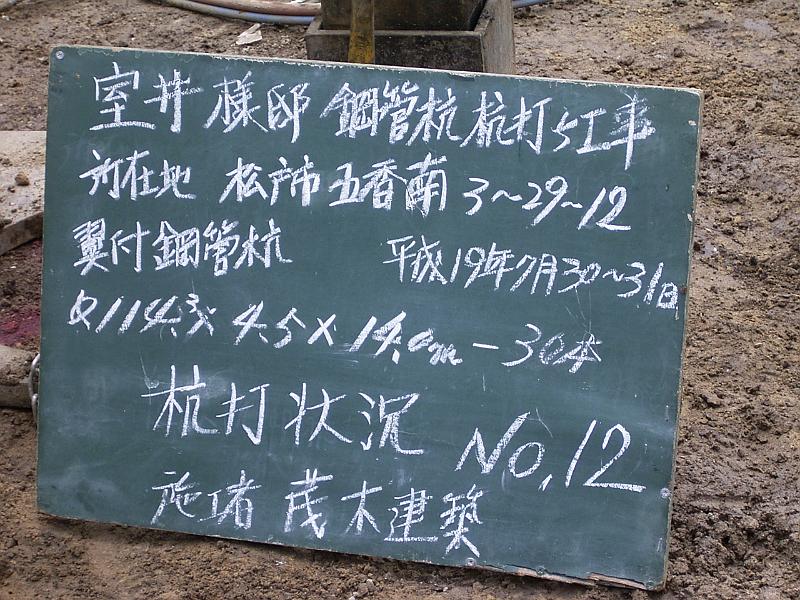 室井様邸 鋼管杭杭打ち工事
所在地 松戸市五香南3〜29〜12
翼付鋼管杭 平成19年7月30〜31日
φ114.3× 4.5×14.0m－30本
杭打状況 No,12
施工者 茂木建築